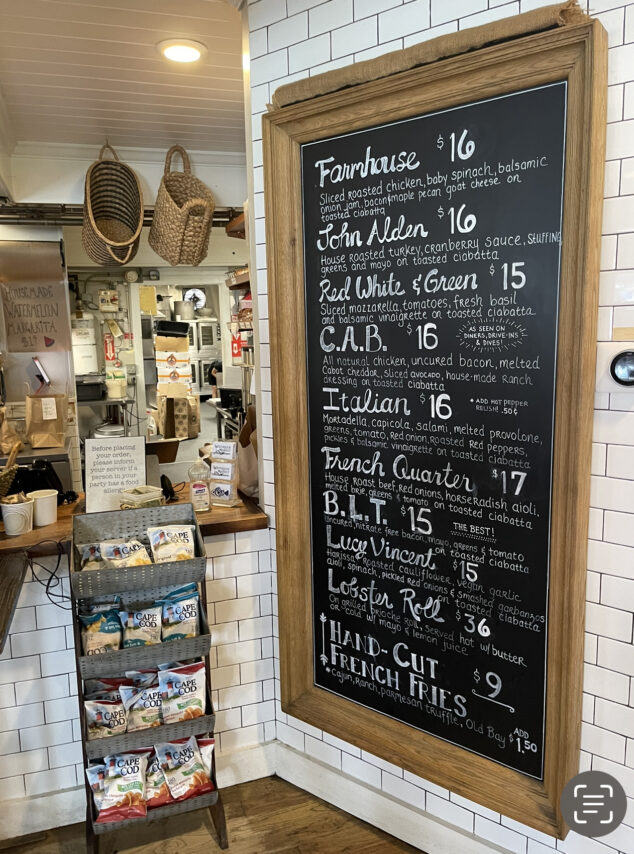 Farmhouse $16
Sliced Roasted chicken, baby spinach, balsamic
onion jam, bacon & maple pecan goat cheese on
toasted ciabatta
John Alden $16
House Roasted turkey, cranberry sauce, stuffing
greens and mayo on toasted ciabatta
Red White & Green $15
Sliced mozzarella, tomatoes, fresh basil
and balsamic vinaigrette on toasted ciabatta
C.A.B. $16
AS SEEN ON
DINERS, DRIVE-INS
& DIVES!
All natural chicken, uncured bacon, melted
Cabot cheddar, sliced avocado, house-made Ranch
dressing on toasted ciabatta
Italian $16
* ADD HOT PEPPER
RELISH! .50¢
Mortadella, capicola, salami, melted provolone,
greens, tomato, red onion, roasted Red peppers,
pickles & balsamic vinaigrette on toasted ciabatta
French Quarter $17
House roast beef, red onions, horseradish aioli,
melted brie, greens & tomato on toasted ciabatta
B.L.T. $15 THE BEST!
Uncured, nitrate free bacon, mayo, greens & tomato
on toasted ciabatta
Lucy Vincent $15
Harissa Roasted cauliflower, vegan garlic
aioli, spinach, pickled red onions & smashed garbanzos
on toasted ciabatta
Lobster Roll $36
On grilled brioche roll, served hot w/ butter
or cold w/ mayo & lemon juice
HAND-CUT
FRENCH FRIES $9
* Cajun, Ranch, parmesan truffle, Old Bay ADD
$1.50
HOUSEMADE
WATERMELON
MARGARITA
$17
Before placing
your order,
please inform
your server if a
person in your
party has a food
allergy.
CAPE COD
CAPE COD
CAPE COD
CAPE COD
CAPE COD
CAPE COD
CAPE COD